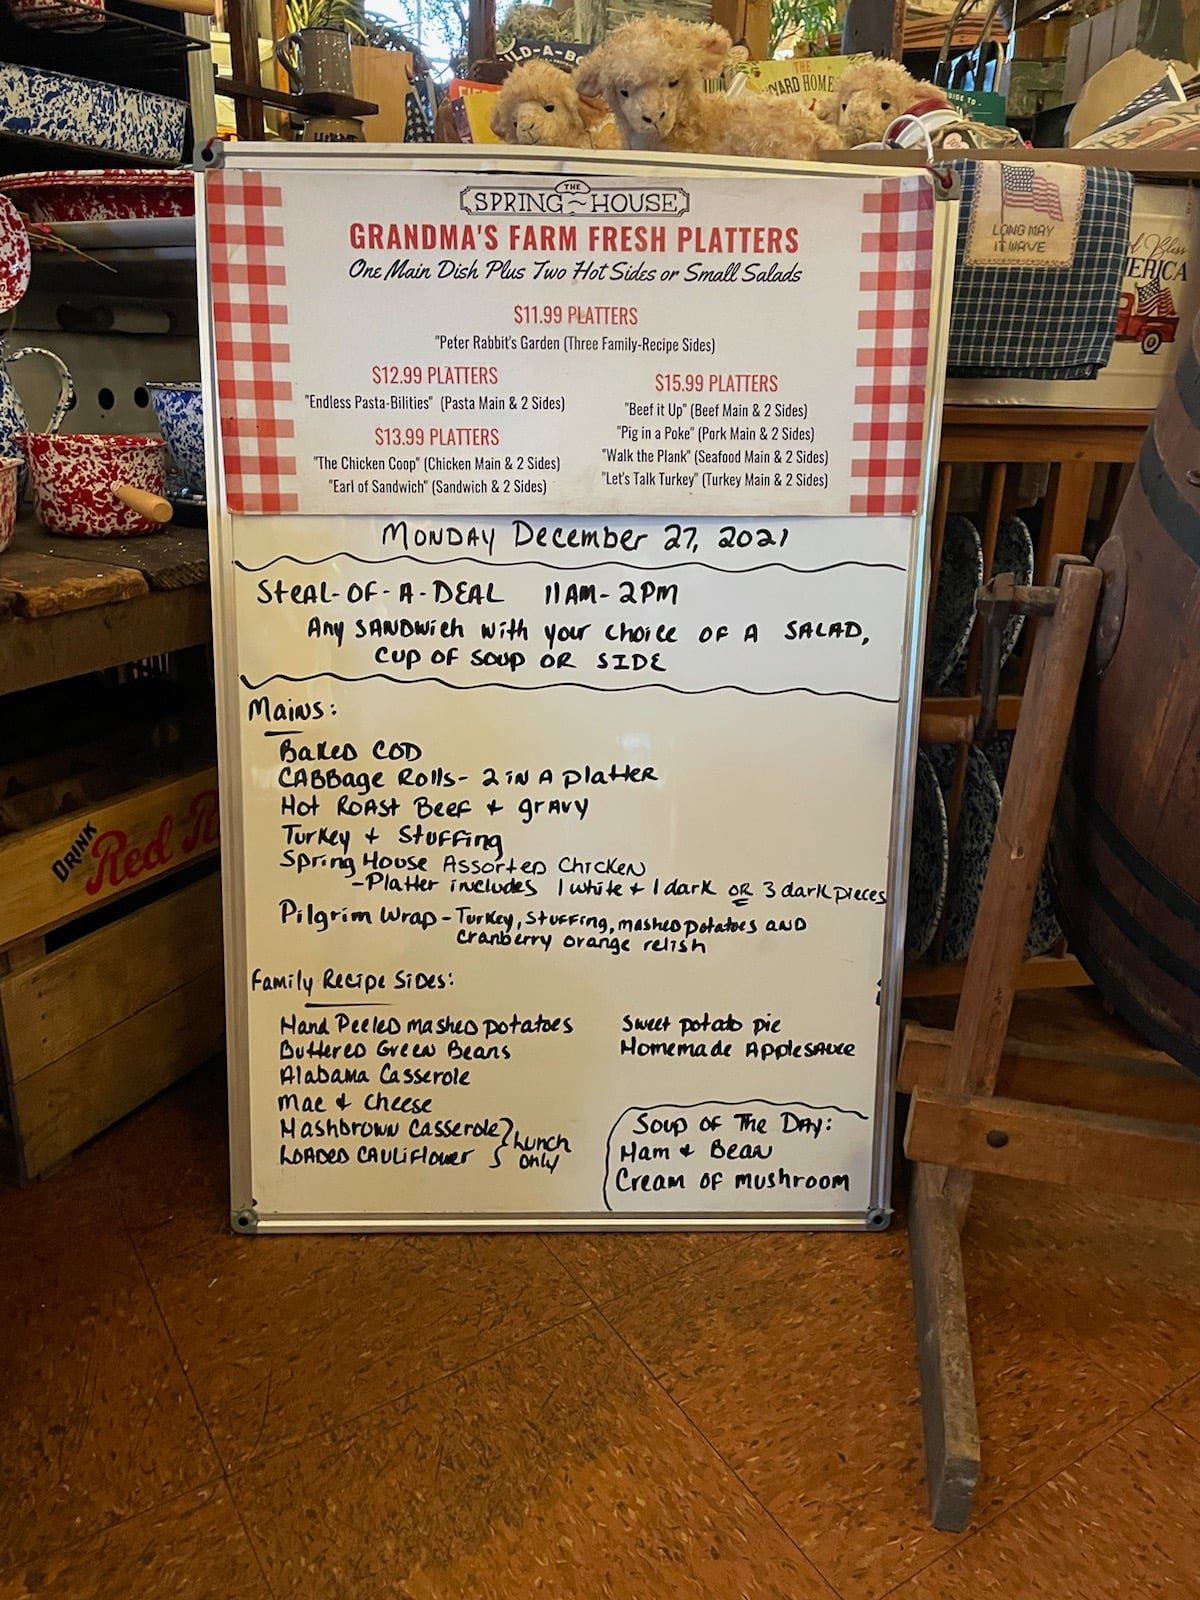 ILD-A-BO
THE
YARD HOME
LONG MAY
IT WAVE
Bless
ERICA
THE
SPRING~HOUSE
GRANDMA'S FARM FRESH PLATTERS
One Main Dish Plus Two Hot Sides or Small Salads
$11.99 PLATTERS
"Peter Rabbit's Garden (Three Family-Recipe Sides)
$12.99 PLATTERS
"Endless Pasta-Bilities" (Pasta Main & 2 Sides)
$13.99 PLATTERS
"The Chicken Coop" (Chicken Main & 2 Sides)
"Earl of Sandwich" (Sandwich & 2 Sides)
$15.99 PLATTERS
"Beef it Up" (Beef Main & 2 Sides)
"Pig in a Poke" (Pork Main & 2 Sides)
"Walk the Plank" (Seafood Main & 2 Sides)
"Let's Talk Turkey" (Turkey Main & 2 Sides)
Monday December 27, 2021
Steal-of-A-Deal 11AM-2PM
Any Sandwich with your choice of a Salad,
cup of soup or side
Mains:
Baked Cod
Cabbage Rolls - 2 in a platter
Hot Roast Beef + gravy
Turkey + Stuffing
Spring House Assorted Chicken
- Platter includes 1 white + 1 dark or 3 dark pieces
Pilgrim Wrap - Turkey, Stuffing, mashed potatoes and
cranberry orange relish
Family Recipe Sides:
Hand Peeled mashed potatoes
Buttered Green Beans
Alabama Casserole
Mac + Cheese
Hashbrown Casserole
Loaded Cauliflower
Lunch
only
Sweet potato pie
Homemade Applesauce
Soup of The Day:
Ham + Bean
Cream of mushroom
DRINK
Red R